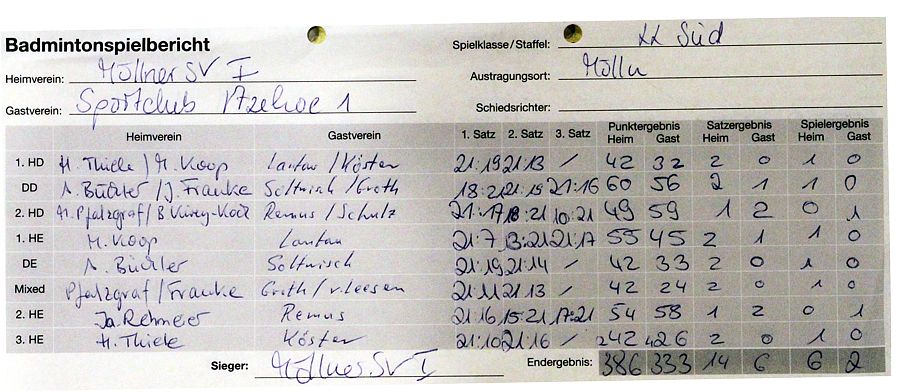 Badmintonspielbericht Spielklasse/Staffel: LL Süd
Heimverein: Möllner SV I Austragungsort: Mölln
Gastverein: Sportclub Itzehoe 1 Schiedsrichter:
Heimverein Gastverein 1. Satz 2. Satz 3. Satz Punktergebnis Heim Gast Satzergebnis Heim Gast Spielergebnis Heim Gast
1. HD H. Thiele / M. Koop Lantau / Kösten 21:19 21:13 / 42 32 2 0 1 0
DD A. Büchler / J. Franke Soltwisch / Groth 18:21 21:19 21:16 60 56 2 1 1 0
2. HD Pfalzgraf / B Remus / Schulz 21:17 18:21 10:21 49 59 1 2 0 1
1. HE M. Koop Lantau 21:7 13:21 21:17 55 45 2 1 1 0
DE A. Büchler Soltwisch 21:19 21:14 / 42 33 2 0 1 0
Mixed Pfalzgraf / Franke Groth / v. Leesen 21:11 21:13 / 42 24 2 0 1 0
2. HE Ja. Rehmeier Remus 21:16 15:21 17:21 54 58 1 2 0 1
3. HE H. Thiele Kösten 21:10 21:16 / 42 26 2 0 1 0
Sieger: Möllner SV I Endergebnis: 386 333 14 6 6 2